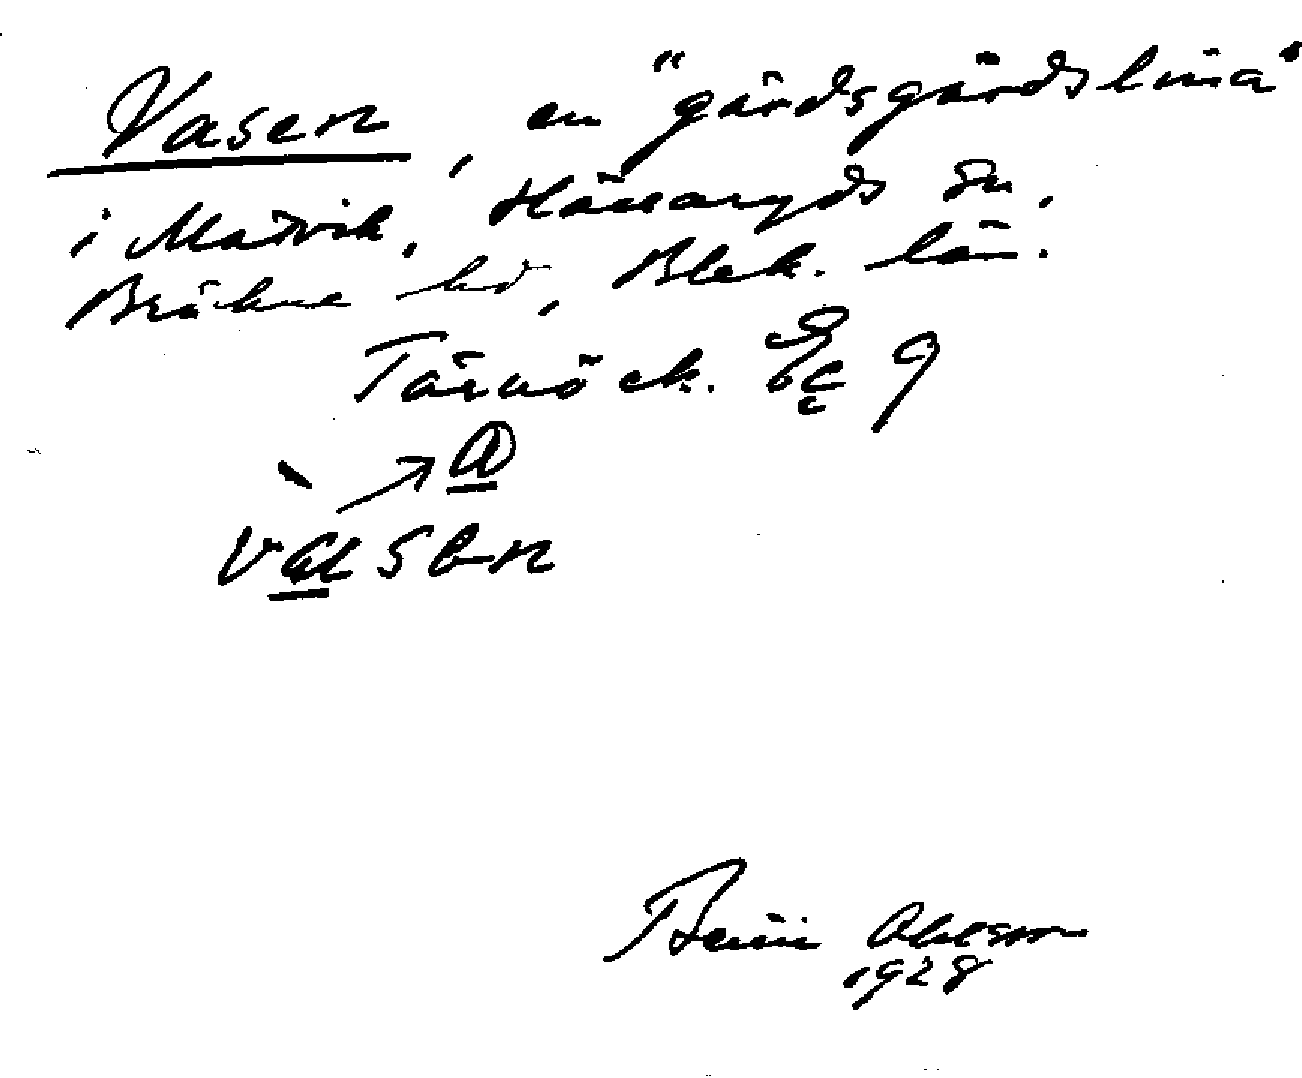 Vasen, en "gärdsgårdslinia"
i Matvik, Hällaryds sn,
Bräkne hd, Blek. län.
Tärnö ek. 9
a
vasen
Ohlsson
1928